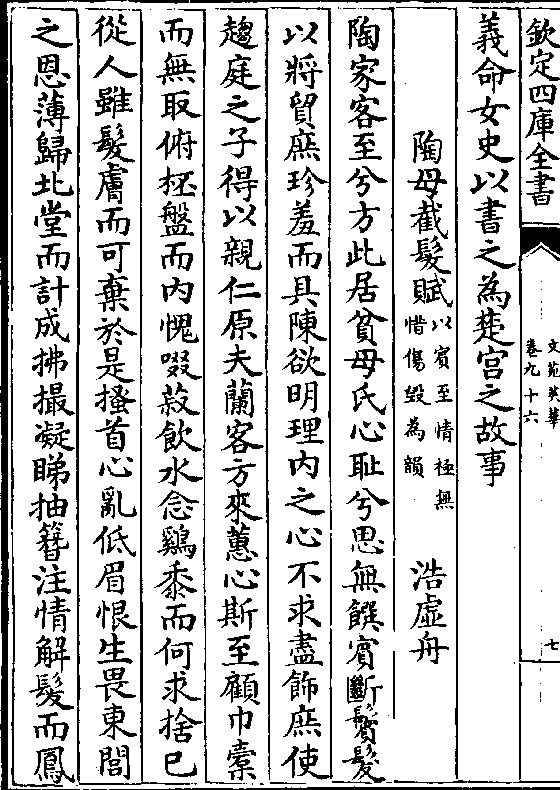 欽定四庫全書
文苑英華
卷九十六
七
義命女史以書之為楚宮之故事
陶母截髮賦以賓至情極無惜傷毀為韻 浩虛舟
陶家客至兮方此居貧母氏心恥兮思無饌賓斷鬢髮
以將貿庶珍羞而具陳欲明理内之心不求盡飾庶使
趨庭之子得以親仁原夫蘭客方來蕙心斯至顧巾橐
而無取俯柸盤而内愧啜菽飲水念鷄黍而何求捨已
從人雖髮膚而可棄於是搔首心亂低眉恨生畏東閭
之恩薄歸北堂而計成拂撮凝睇抽簪注情解髮而鳳